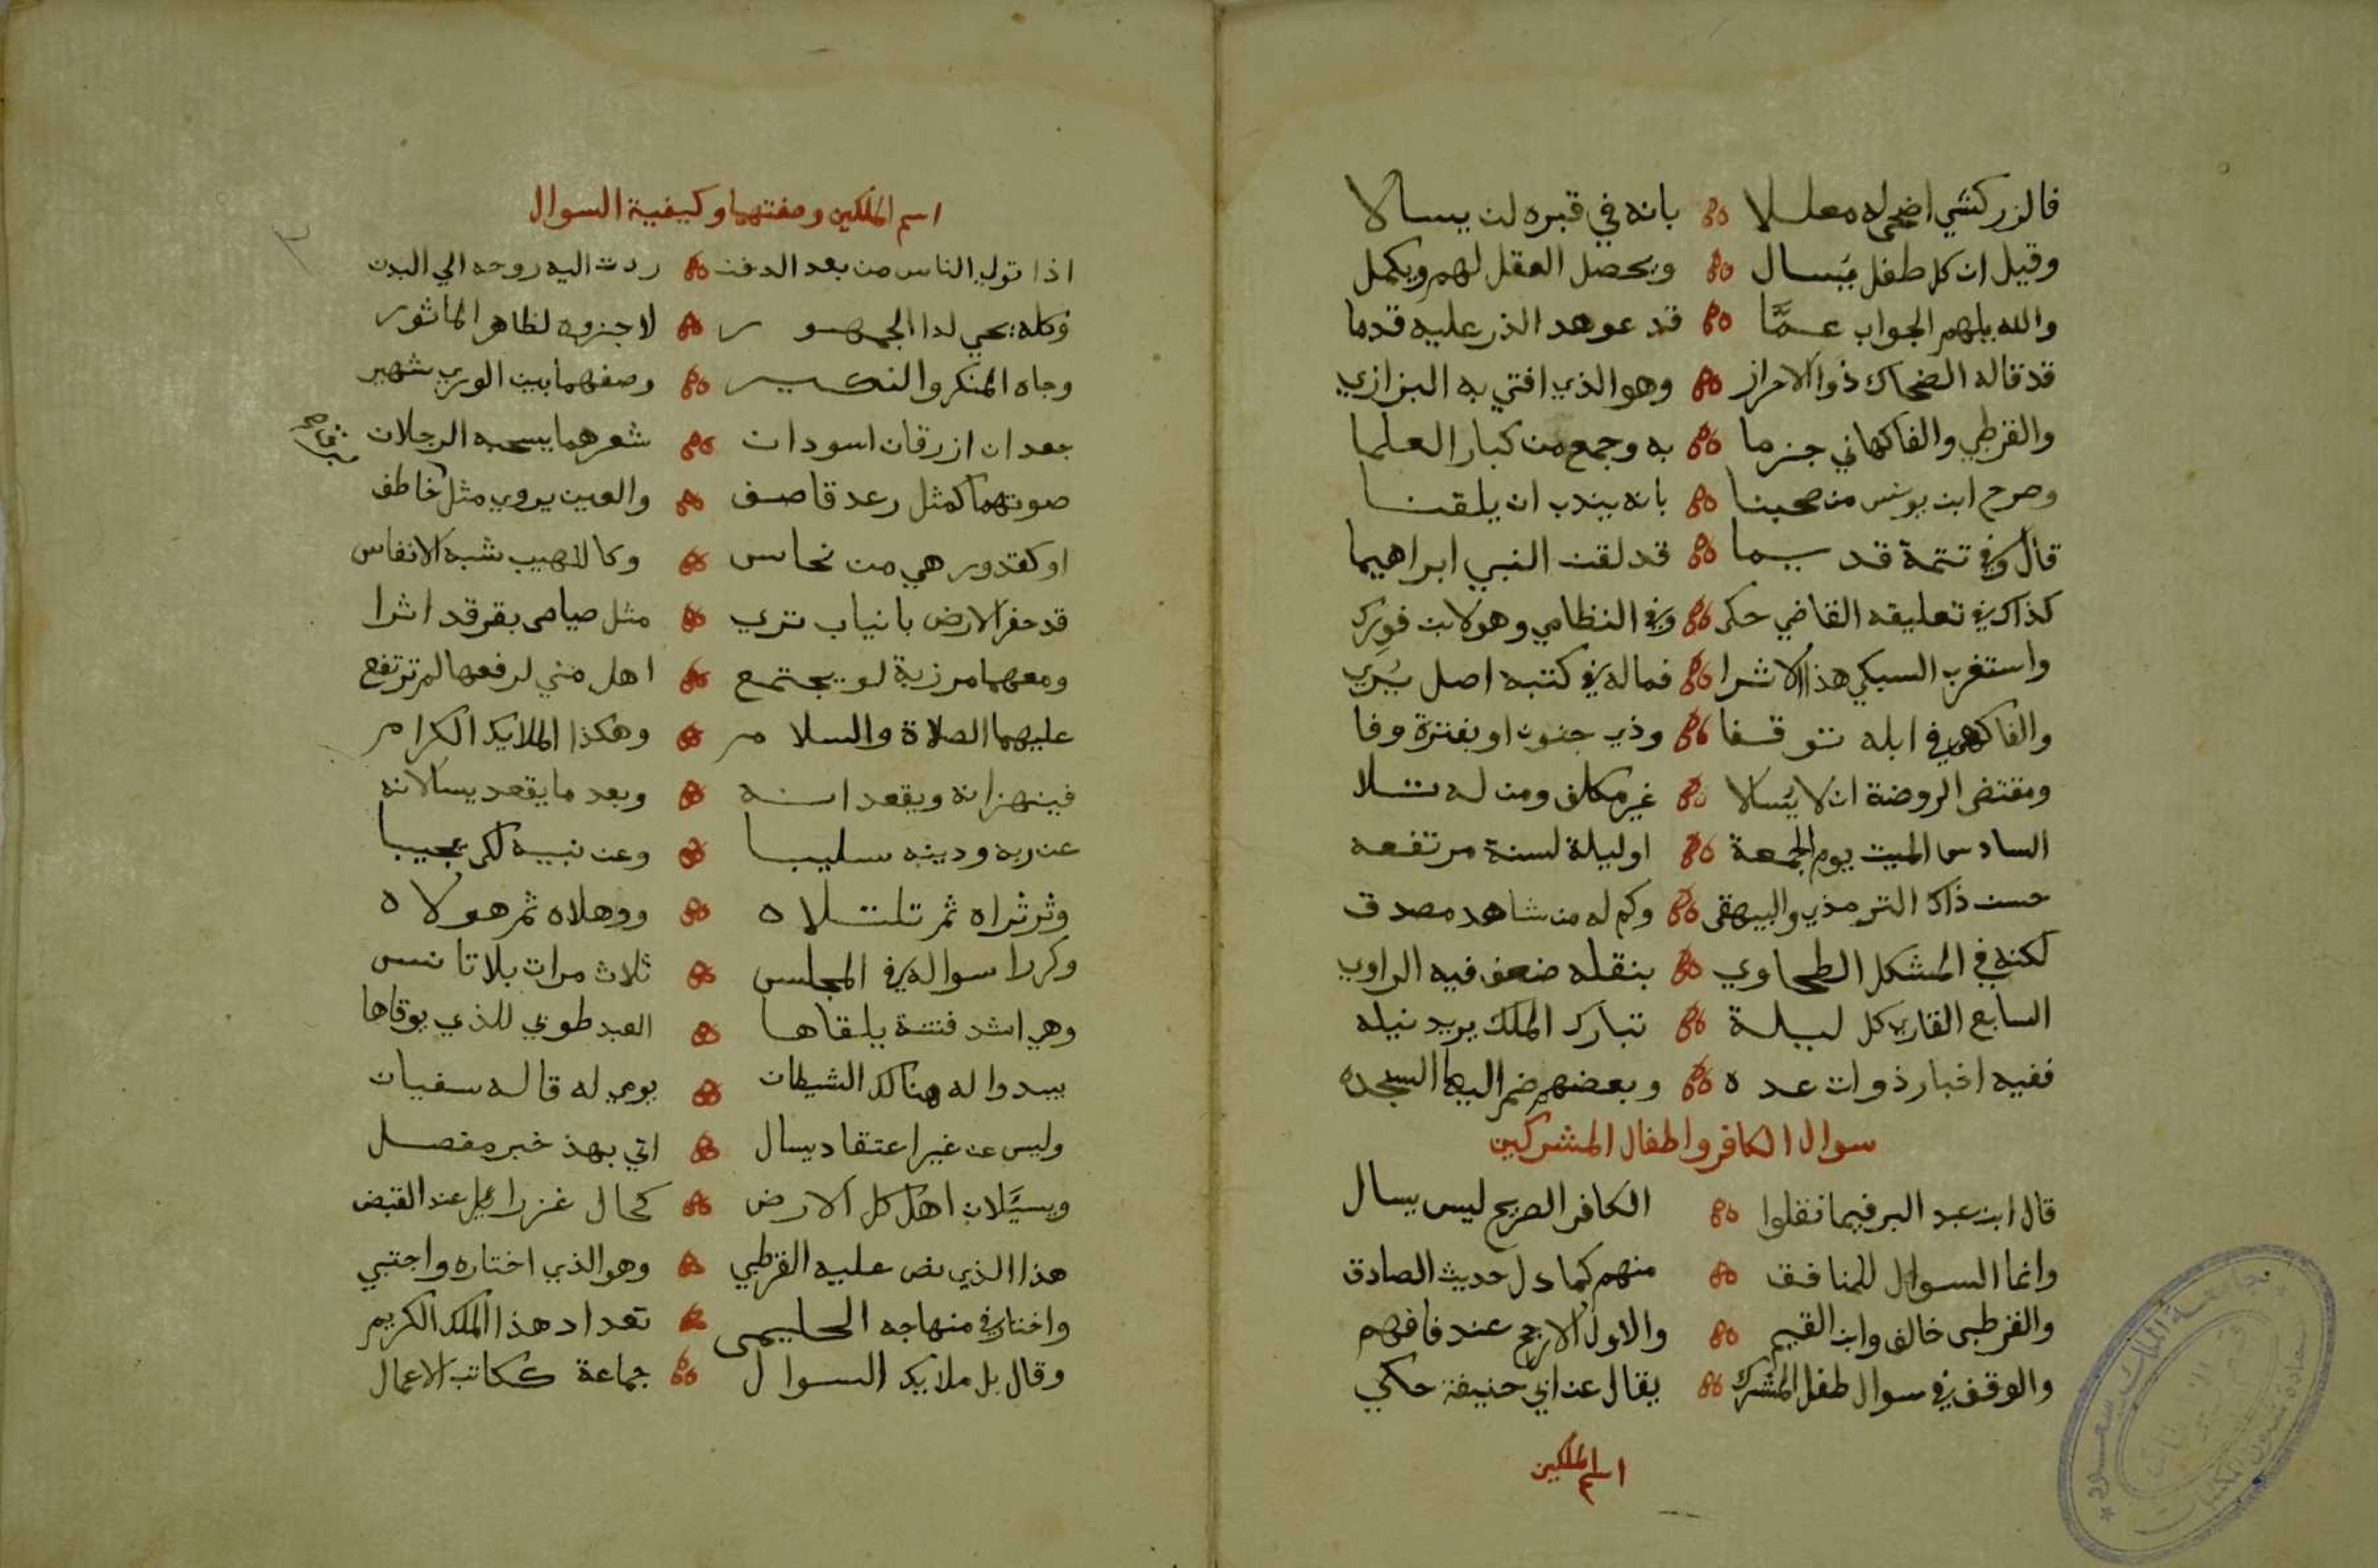 فالزركشي اضحى له معللا بانه في قبره لن يسالا
وقيل ان كل طفل يسال ويحصل العقل لهم ويكمل
والله يلهم الجواب عمَّا قد عوهد الذر عليه قدما
قد قاله الضحاك ذو الاحراز وهو الذي افتي به البزازي
والقرطبي والفاكهاني جزما به وجمع من كبار العلما
وصرح ابن يونس من صحبنا بانه يندب ان يلقنا
قال وفي تتمة قد سيما قد لقن النبي ابراهيما
كذاك في تعليقه القاضي حكى وفي النظامي وهو لابن فورك
واستغرب السبكي هذا الاثرا فماله في كتبه اصل يُري
والفاكهي في ابله توقفا وذي جنون او بفترة وفا
ومقتضى الروضة ان لا يسالا غير مكلف ومن له تلا
السادس الميت يوم الجمعة او ليلة لسنة مرتفعه
حسن ذاك الترمذي والبيهقى وكم له من شاهد مصدق
لكنه في المشكل الطحاوي بنقله ضعف فيه الراوي
السابع القاري كل ليلة تبارك الملك يريد نيله
ففيه اخبار ذوات عده وبعضهم ضم اليها السجده
سوال الكافر واطفال المشركين
قال ابن عبد البر فيما نقلوا الكافر الصريح ليس يسال
وانما السوال للمنافق منهم كما دل حديث الصادق
والقرطبى خالف وابن القيم والاول الارجح عند فافهم
والوقف في سوال طفل المشرك يقال عن ابي حنيفة حكي
اسم الملكين
اسم الملكين وصفتهما وكيفية السوال
اذا تولي الناس من بعد الدفن ردت اليه روحه الي البدن
وكله يحي لدا الجمهور لا جزوه لظاهر الماثور
وجاه المنكر والنكير وصفهما بين الوري شهير
جعدان ازرقان اسودان شعرهما يسحبه الرجلان
صوتهما كمثل رعد قاصف والعين يروي مثل خاطف
او كقدور هي من نحاس وكاللهيب شبه الانفاس
قد حفر الارض بانياب تري مثل صياصى بقر قد اثرا
ومعهما مرزبة لو يجتمع اهل مني لرفعها لم ترتفع
عليهما الصلاة والسلام وهكذا الملايك الكرام
فينهزانه ويقعدانه وبعد ما يقعد يسالانه
عن ربه ودينه سليبا وعن نبيه لكي يجيبا
وثرثراه ثم تلتلاه ووهلاه ثم هولاه
وكررا سواله في المجلس ثلاث مرات بلا تانس
وهي اشد فتنة يلقاها العبد طوبي للذي يوقاها
يبدوا له هنالك الشيطان يومي له قاله سفيان
وليس عن غير اعتقاد يسال اتي بهذ خبر مفصل
ويسيَّلان اهل كل الارض كحال عزرائيل عند القبض
هذا الذي نص عليه القرطبي وهو الذي اختاره واجتبي
واختار في منهاجه الحليمى تعداد هذا الملك الكريم
وقال بل ملايك السوال جماعة ككاتب الاعمال